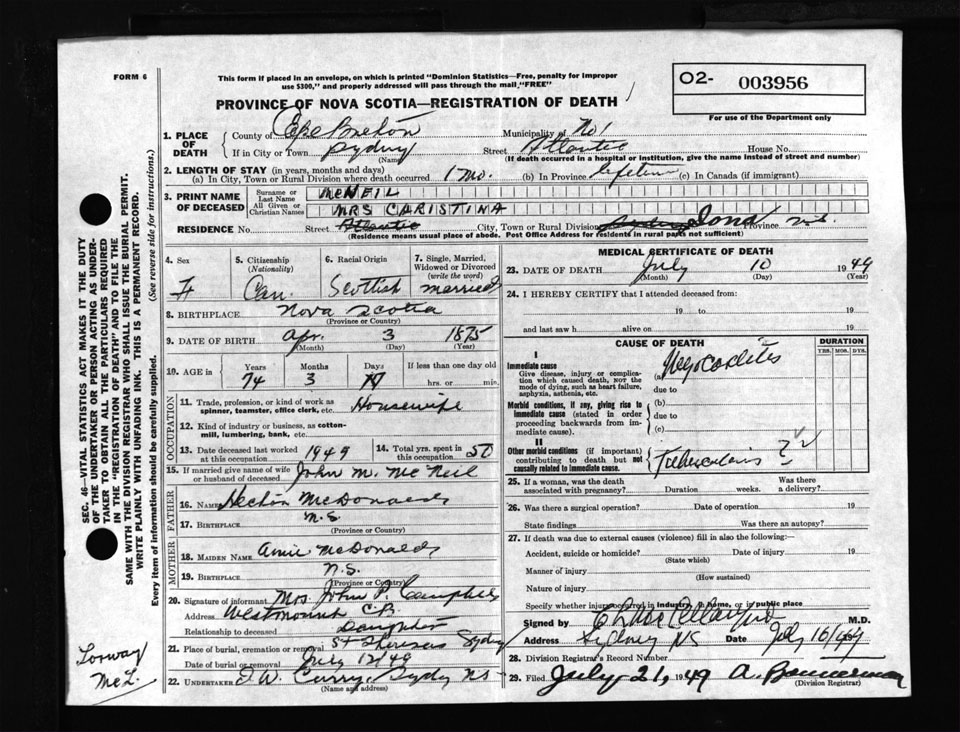 FORM 6
This form if placed in an envelope, on which is printed "Dominion Statistics—Free, penalty for improper
use $300," and properly addressed will pass through the mail, "FREE"
O2- 003956
For use of the Department only
PROVINCE OF NOVA SCOTIA—REGISTRATION OF DEATH
1. PLACE OF DEATH County of Cape Breton Municipality of No 1
If in City or Town Sydney (Name) Street Atlantic House No.
(If death occurred in a hospital or institution, give the name instead of street and number)
2. LENGTH OF STAY (in years, months and days)
(a) In City, Town or Rural Division where death occurred 1 mo. (b) In Province lifetime (c) In Canada (if immigrant)
3. PRINT NAME OF DECEASED Surname or Last Name McNEIL
All Given or Christian Names MRS CARISTINA
RESIDENCE No. Street Atlantic City, Town or Rural Division Sydney Iona Province N.S.
(Residence means usual place of abode. Post Office Address for residents in rural parts not sufficient)
4. Sex F
5. Citizenship (Nationality) Can.
6. Racial Origin Scottish
7. Single, Married, Widowed or Divorced (write the word) married
8. BIRTHPLACE Nova Scotia
(Province or Country)
9. DATE OF BIRTH Apr. 3 1875
(Month) (Day) (Year)
10. AGE in Years 74 Months 3 Days If less than one day hrs. or min.
OCCUPATION
11. Trade, profession, or kind of work as spinner, teamster, office clerk, etc. Housewife
12. Kind of industry or business, as cotton-mill, lumbering, bank, etc.
13. Date deceased last worked at this occupation 1949
14. Total yrs. spent in this occupation 50
15. If married give name of wife or husband of deceased John M. McNeil
FATHER
16. Name Hector McDonald
17. Birthplace N.S.
(Province or Country)
MOTHER
18. Maiden Name Annie McDonald
19. Birthplace N.S.
(Province or Country)
20. Signature of informant Mrs John P. Campbell
Address Westmount C.B.
Relationship to deceased Daughter
21. Place of burial, cremation or removal St Theresas Sydney
Date of burial or removal July 12/49
22. UNDERTAKER W. Curry, Sydney NS
(Name and address)
MEDICAL CERTIFICATE OF DEATH
23. DATE OF DEATH July 10 1949
(Month) (Day) (Year)
24. I HEREBY CERTIFY that I attended deceased from:
19 to 19
and last saw h alive on 19
CAUSE OF DEATH
DURATION
YRS. MOS. DYS.
I
Immediate cause
Give disease, injury or complication which caused death, not the mode of dying, such as heart failure, asphyxia, asthenia, etc.
(a) Myocarditis
due to
Morbid conditions, if any, giving rise to immediate cause (stated in order proceeding backwards from immediate cause).
(b)
due to
(c)
II
Other morbid conditions (if important) contributing to death but not causally related to immediate cause.
Tuberculosis ?
25. If a woman, was the death associated with pregnancy? Duration weeks. Was there a delivery?
26. Was there a surgical operation? Date of operation 19
State findings Was there an autopsy?
27. If death was due to external causes (violence) fill in also the following:—
Accident, suicide or homicide? Date of injury 19
(State which)
Manner of injury
(How sustained)
Nature of injury
Specify whether injury occurred in industry, in home, or in public place
Signed by M.D.
Address Sydney NS Date July 16/49
28. Division Registrar's Record Number
29. Filed July 21, 1949 A. Bannerman
(Division Registrar)
SEC. 46—VITAL STATISTICS ACT MAKES IT THE DUTY
OF THE UNDERTAKER OR PERSON ACTING AS UNDER-
TAKER TO OBTAIN ALL THE PARTICULARS REQUIRED
IN THE "REGISTRATION OF DEATH" AND TO FILE THE
SAME WITH THE DIVISION REGISTRAR WHO SHALL ISSUE THE BURIAL PERMIT.
WRITE PLAINLY WITH UNFADING INK. THIS IS A PERMANENT RECORD.
Every item of Information should be carefully supplied. (See reverse side for instructions.)